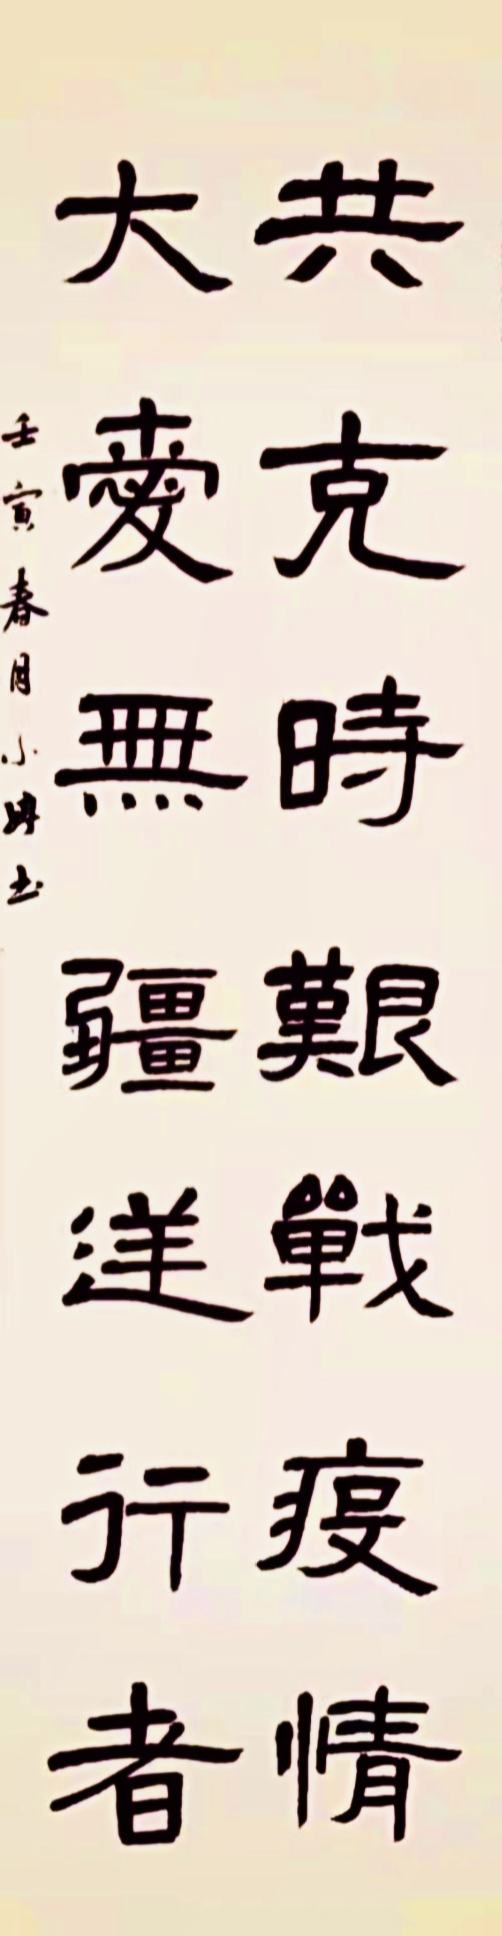 共克時艱戰疫情
大愛無疆逆行者
壬寅春月小书